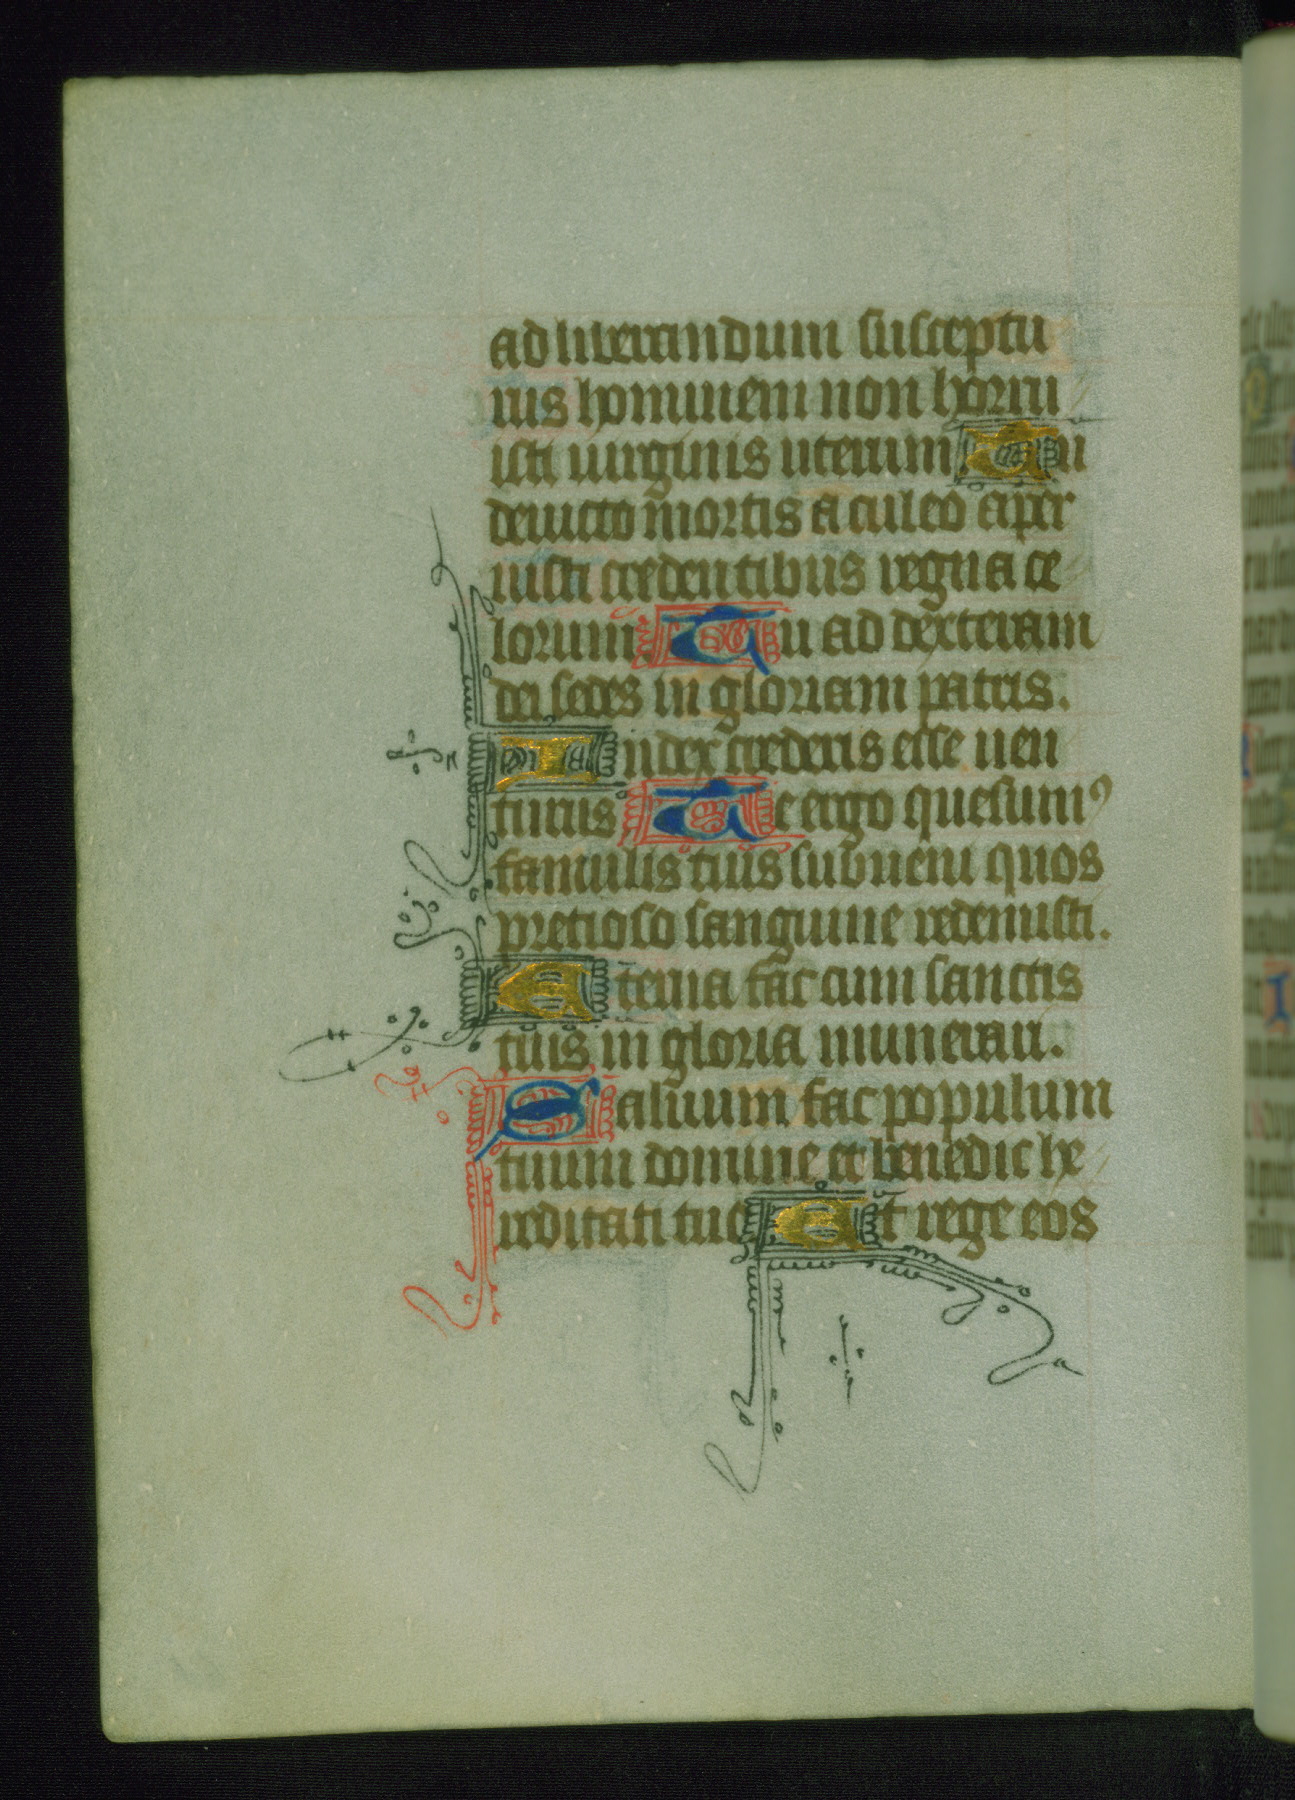 ad liberandum susceptu
rus hominem non horru
isti uirginis uterum. Tu
deuicto mortis aculeo aper
uisti credentibus regna ce
lorum. Tu ad dexteram
dei sedes in gloriam patris.
Iudex crederis esse uen
turus. Te ergo quesumꝰ
famulis tuis subueni quos
pretioso sanguine redemisti.
Eterna fac cum sanctis
tuis in gloria munerari.
Saluum fac populum
tuum domine et benedic he
reditati tue. Et rege eos